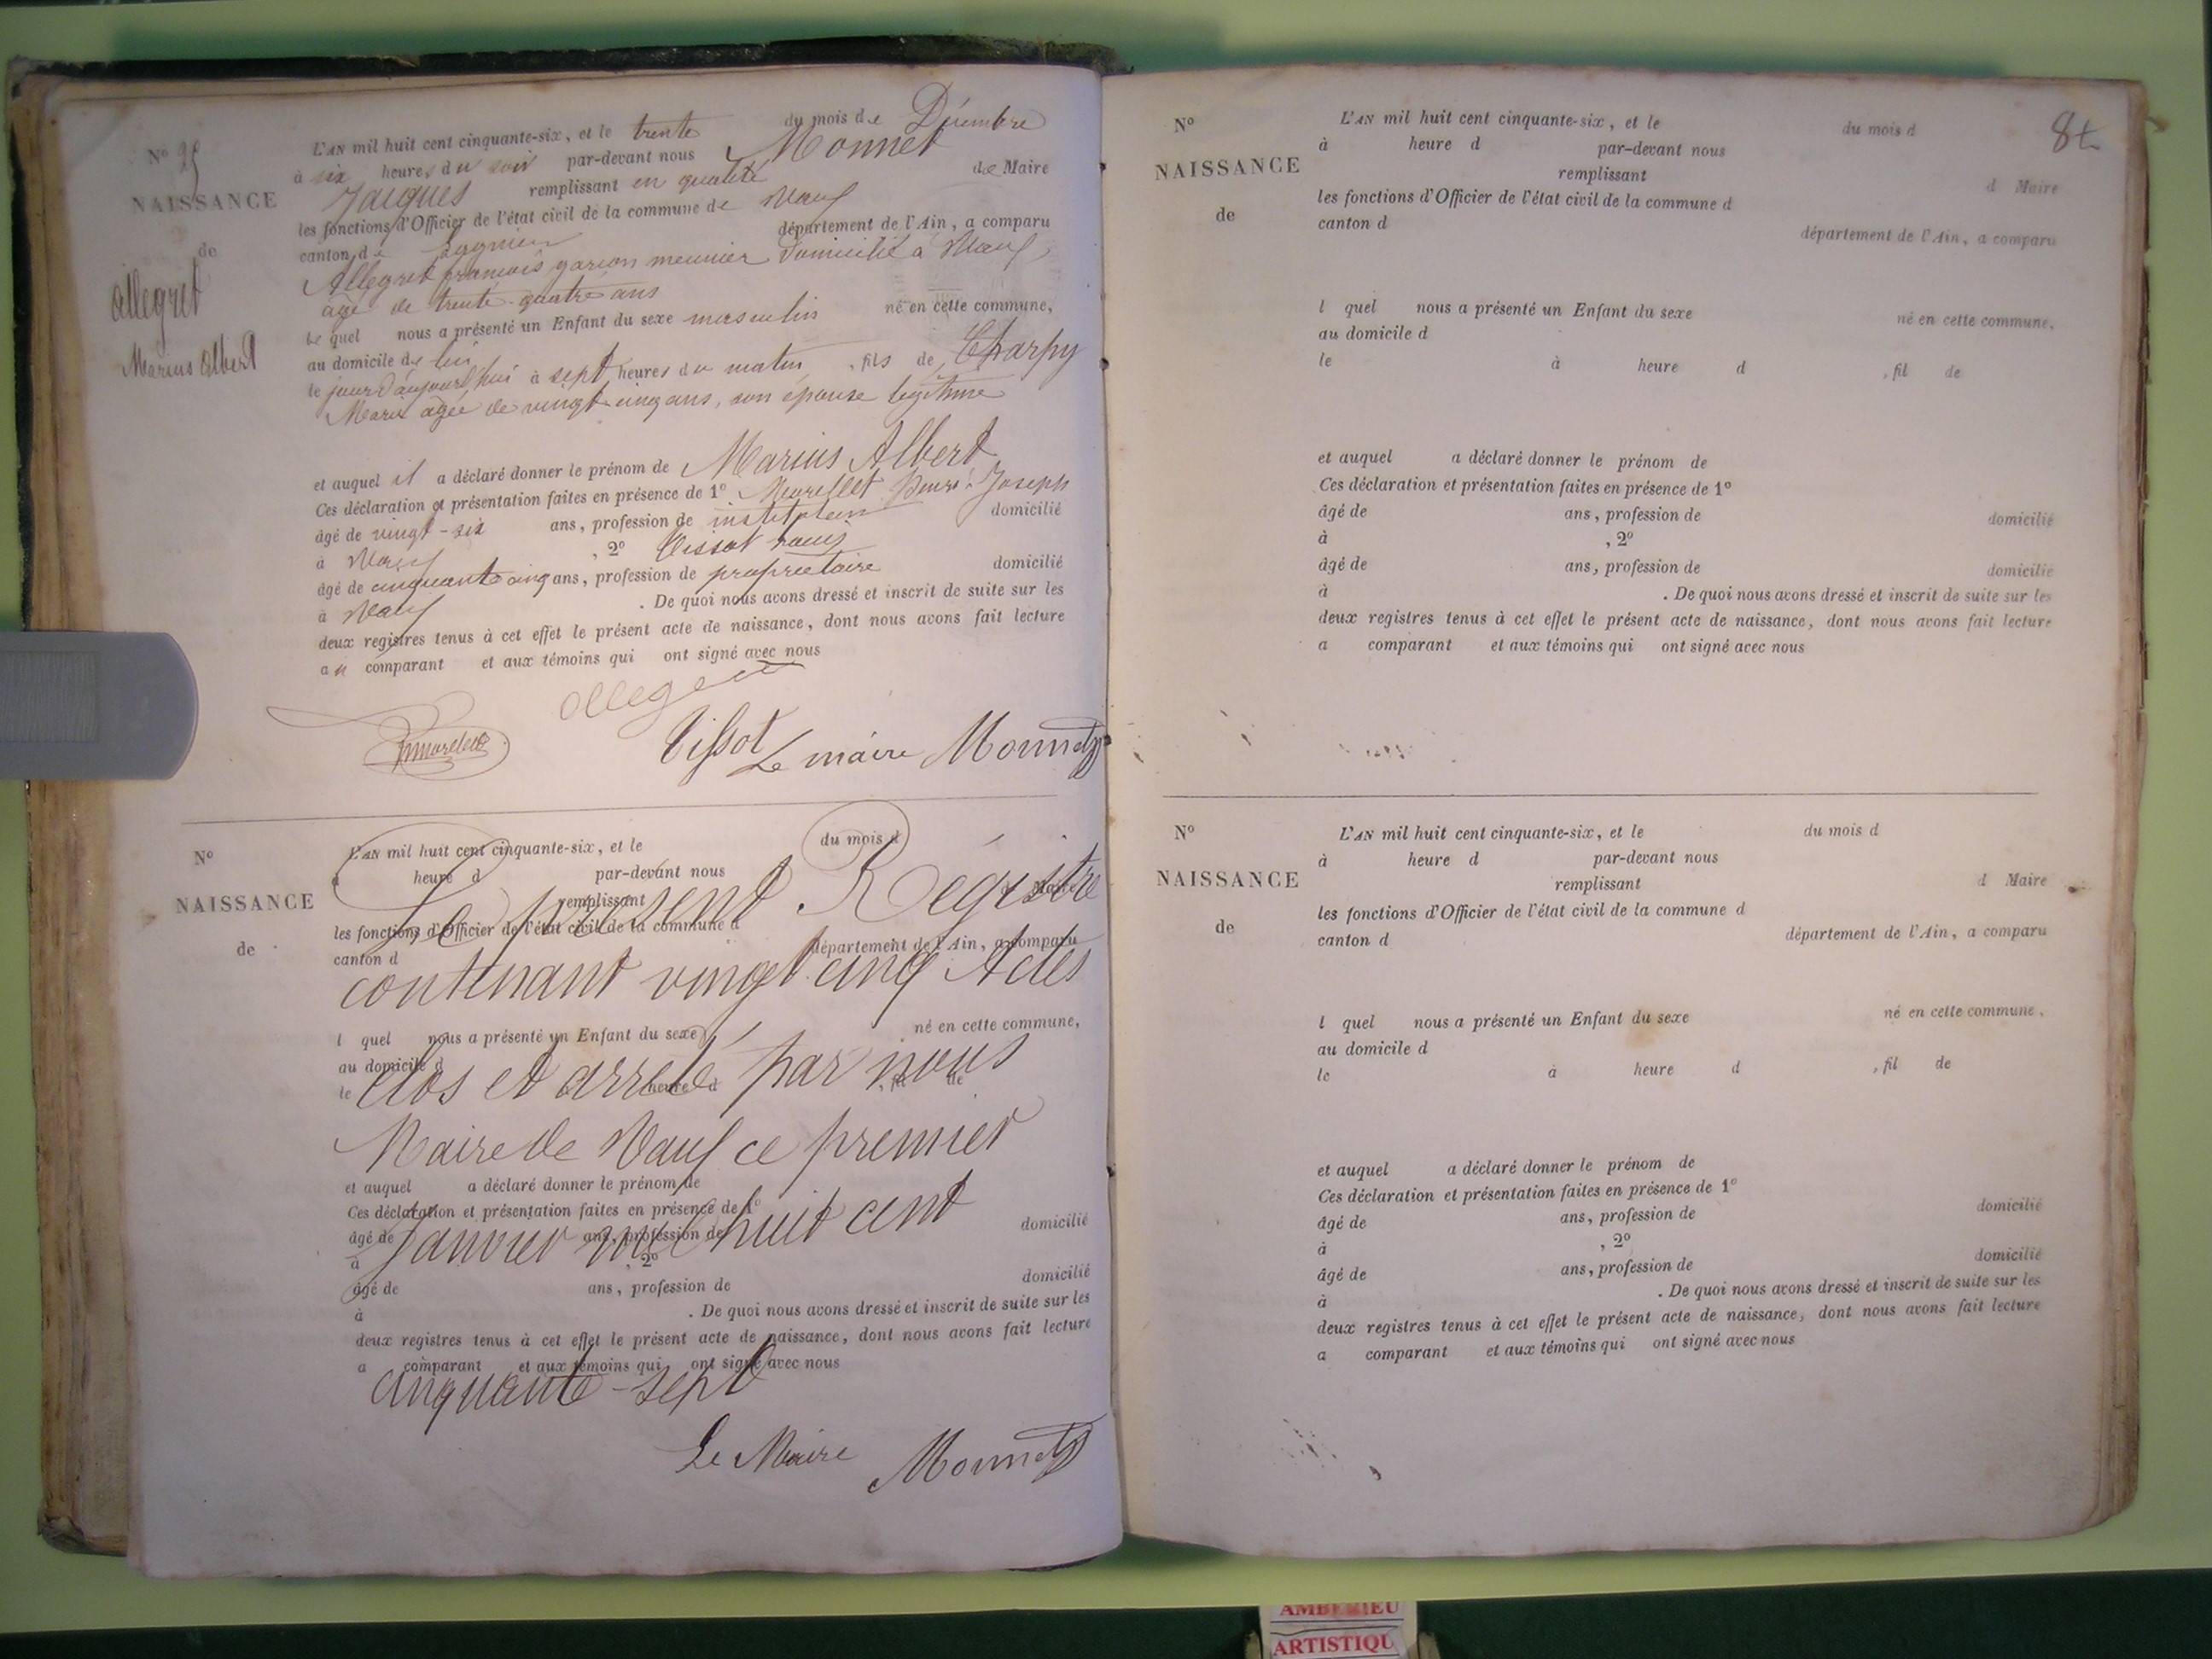 N° 25
NAISSANCE
de
Allegret
Marius Albert
L'AN mil huit cent cinquante-six, et le trente du mois de Décembre
à six heures du soir par-devant nous Monnet
Jacques remplissant en qualité de Maire
les fonctions d'Officier de l'état civil de la commune de Vaux
canton de Lagnieu département de l'Ain, a comparu
Allegret françois garçon meunier domicilié à Vaux
âgé de trente-quatre ans
le quel nous a présenté un Enfant du sexe masculin né en cette commune,
au domicile de lui
le jour d'aujourd'hui à sept heures du matin, fils de Charpy
Marie agée de vingt-cinq ans, son épouse légitime
et auquel il a déclaré donner le prénom de Marius Albert
Ces déclaration et présentation faites en présence de 1° Joseph
âgé de vingt-six ans, profession de instituteur domicilié
à Vaux, 2° Tissot Louis
âgé de cinquante cinq ans, profession de propriétaire domicilié
à Vaux. De quoi nous avons dressé et inscrit de suite sur les
deux registres tenus à cet effet le présent acte de naissance, dont nous avons fait lecture
au comparant et aux témoins qui ont signé avec nous
allegret
Tissot
Le maire Monnet
N°
NAISSANCE
de
L'AN mil huit cent cinquante-six, et le du mois d
à heure d par-devant nous
remplissant d Maire
Le présent Régistre
les fonctions d'Officier de l'état civil de la commune d
canton d département de l'Ain, a comparu
contenant vingt cinq Actes
l quel nous a présenté un Enfant du sexe né en cette commune,
au domicile d
le heure d , fil de
clos et arrêté par nous
Maire de Vaux ce premier
et auquel a déclaré donner le prénom de
Ces déclaration et présentation faites en présence de 1°
âgé de ans, profession de domicilié
Janvier mil huit cent
à , 2°
âgé de ans, profession de domicilié
à . De quoi nous avons dressé et inscrit de suite sur les
deux registres tenus à cet effet le présent acte de naissance, dont nous avons fait lecture
a comparant et aux témoins qui ont signé avec nous
cinquante-sept
Le Maire Monnet
N°
NAISSANCE
de
L'AN mil huit cent cinquante-six, et le du mois d
à heure d par-devant nous
remplissant d Maire
les fonctions d'Officier de l'état civil de la commune d
canton d département de l'Ain, a comparu
l quel nous a présenté un Enfant du sexe né en cette commune,
au domicile d
le à heure d , fil de
et auquel a déclaré donner le prénom de
Ces déclaration et présentation faites en présence de 1°
âgé de ans, profession de domicilié
à , 2°
âgé de ans, profession de domicilié
à . De quoi nous avons dressé et inscrit de suite sur les
deux registres tenus à cet effet le présent acte de naissance, dont nous avons fait lecture
a comparant et aux témoins qui ont signé avec nous
N°
NAISSANCE
de
L'AN mil huit cent cinquante-six, et le du mois d
à heure d par-devant nous
remplissant d Maire
les fonctions d'Officier de l'état civil de la commune d
canton d département de l'Ain, a comparu
l quel nous a présenté un Enfant du sexe né en cette commune,
au domicile d
le à heure d , fil de
et auquel a déclaré donner le prénom de
Ces déclaration et présentation faites en présence de 1°
âgé de ans, profession de domicilié
à , 2°
âgé de ans, profession de domicilié
à . De quoi nous avons dressé et inscrit de suite sur les
deux registres tenus à cet effet le présent acte de naissance, dont nous avons fait lecture
a comparant et aux témoins qui ont signé avec nous
AMBERIEU
ARTISTIQU